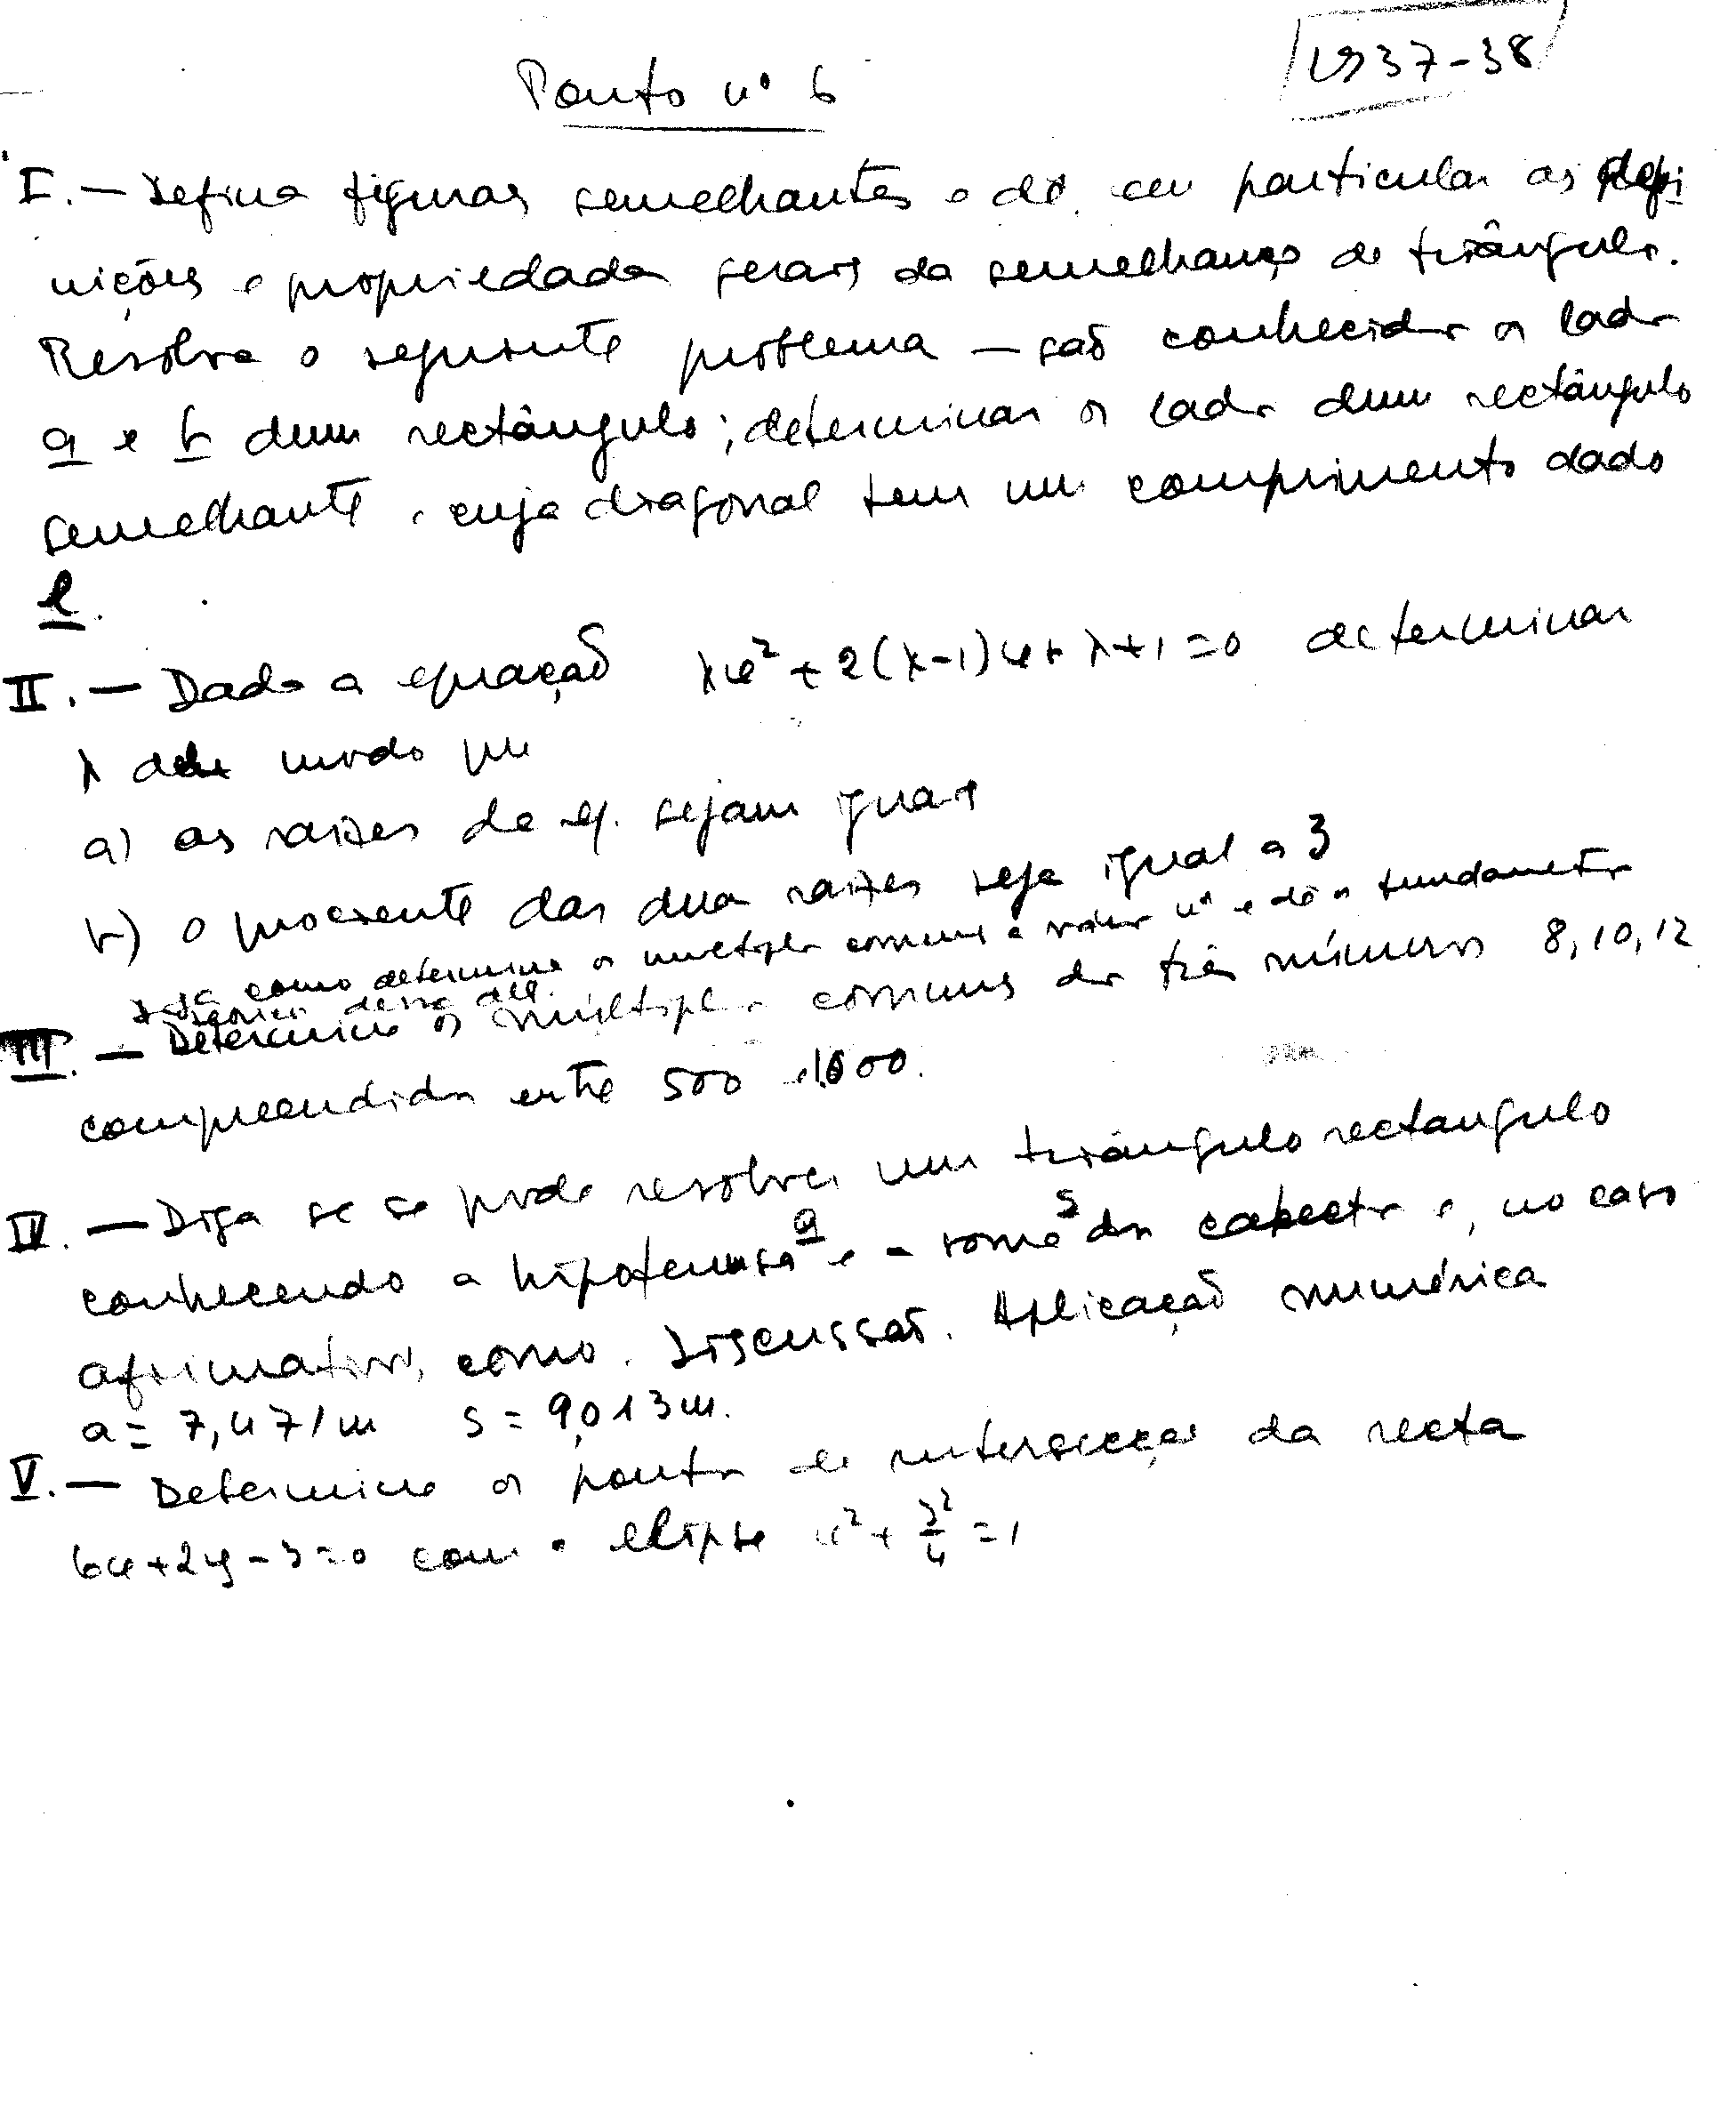 Ponto nº 6
1937-38
I. — Defina figuras semelhantes e dê em particular as defi
nições e propriedades gerais da semelhança de triângulos.
Resolva o seguinte problema — são conhecidos os lados
a e b dum rectângulo; determinar os lados dum rectângulo
semelhante, cuja diagonal tem um comprimento dado
l.
II. — Dada a equação λx² + 2(λ-1)x + λ+1 = 0 determinar
λ de modo que
a) as raizes da eq. sejam iguais
b) o quociente das duas raizes seja igual a 3
Diga como determina os multiplos comuns a vários nºs e dê o fundamento
teórico
III. — Determine os múltiplos comuns dos três números 8, 10, 12
compreendidos entre 500 e 1000.
IV. — Diga se se pode resolver um triângulo rectangulo
conhecendo a hipotenusa a e a soma s dos catetos e, no caso
afirmativo, como. Discussão. Aplicação numérica
a = 7,471m s = 9,013m.
V. — Determine os pontos de intersecção da recta
6x+2y-3=0 com a elipse x² + y²/4 = 1